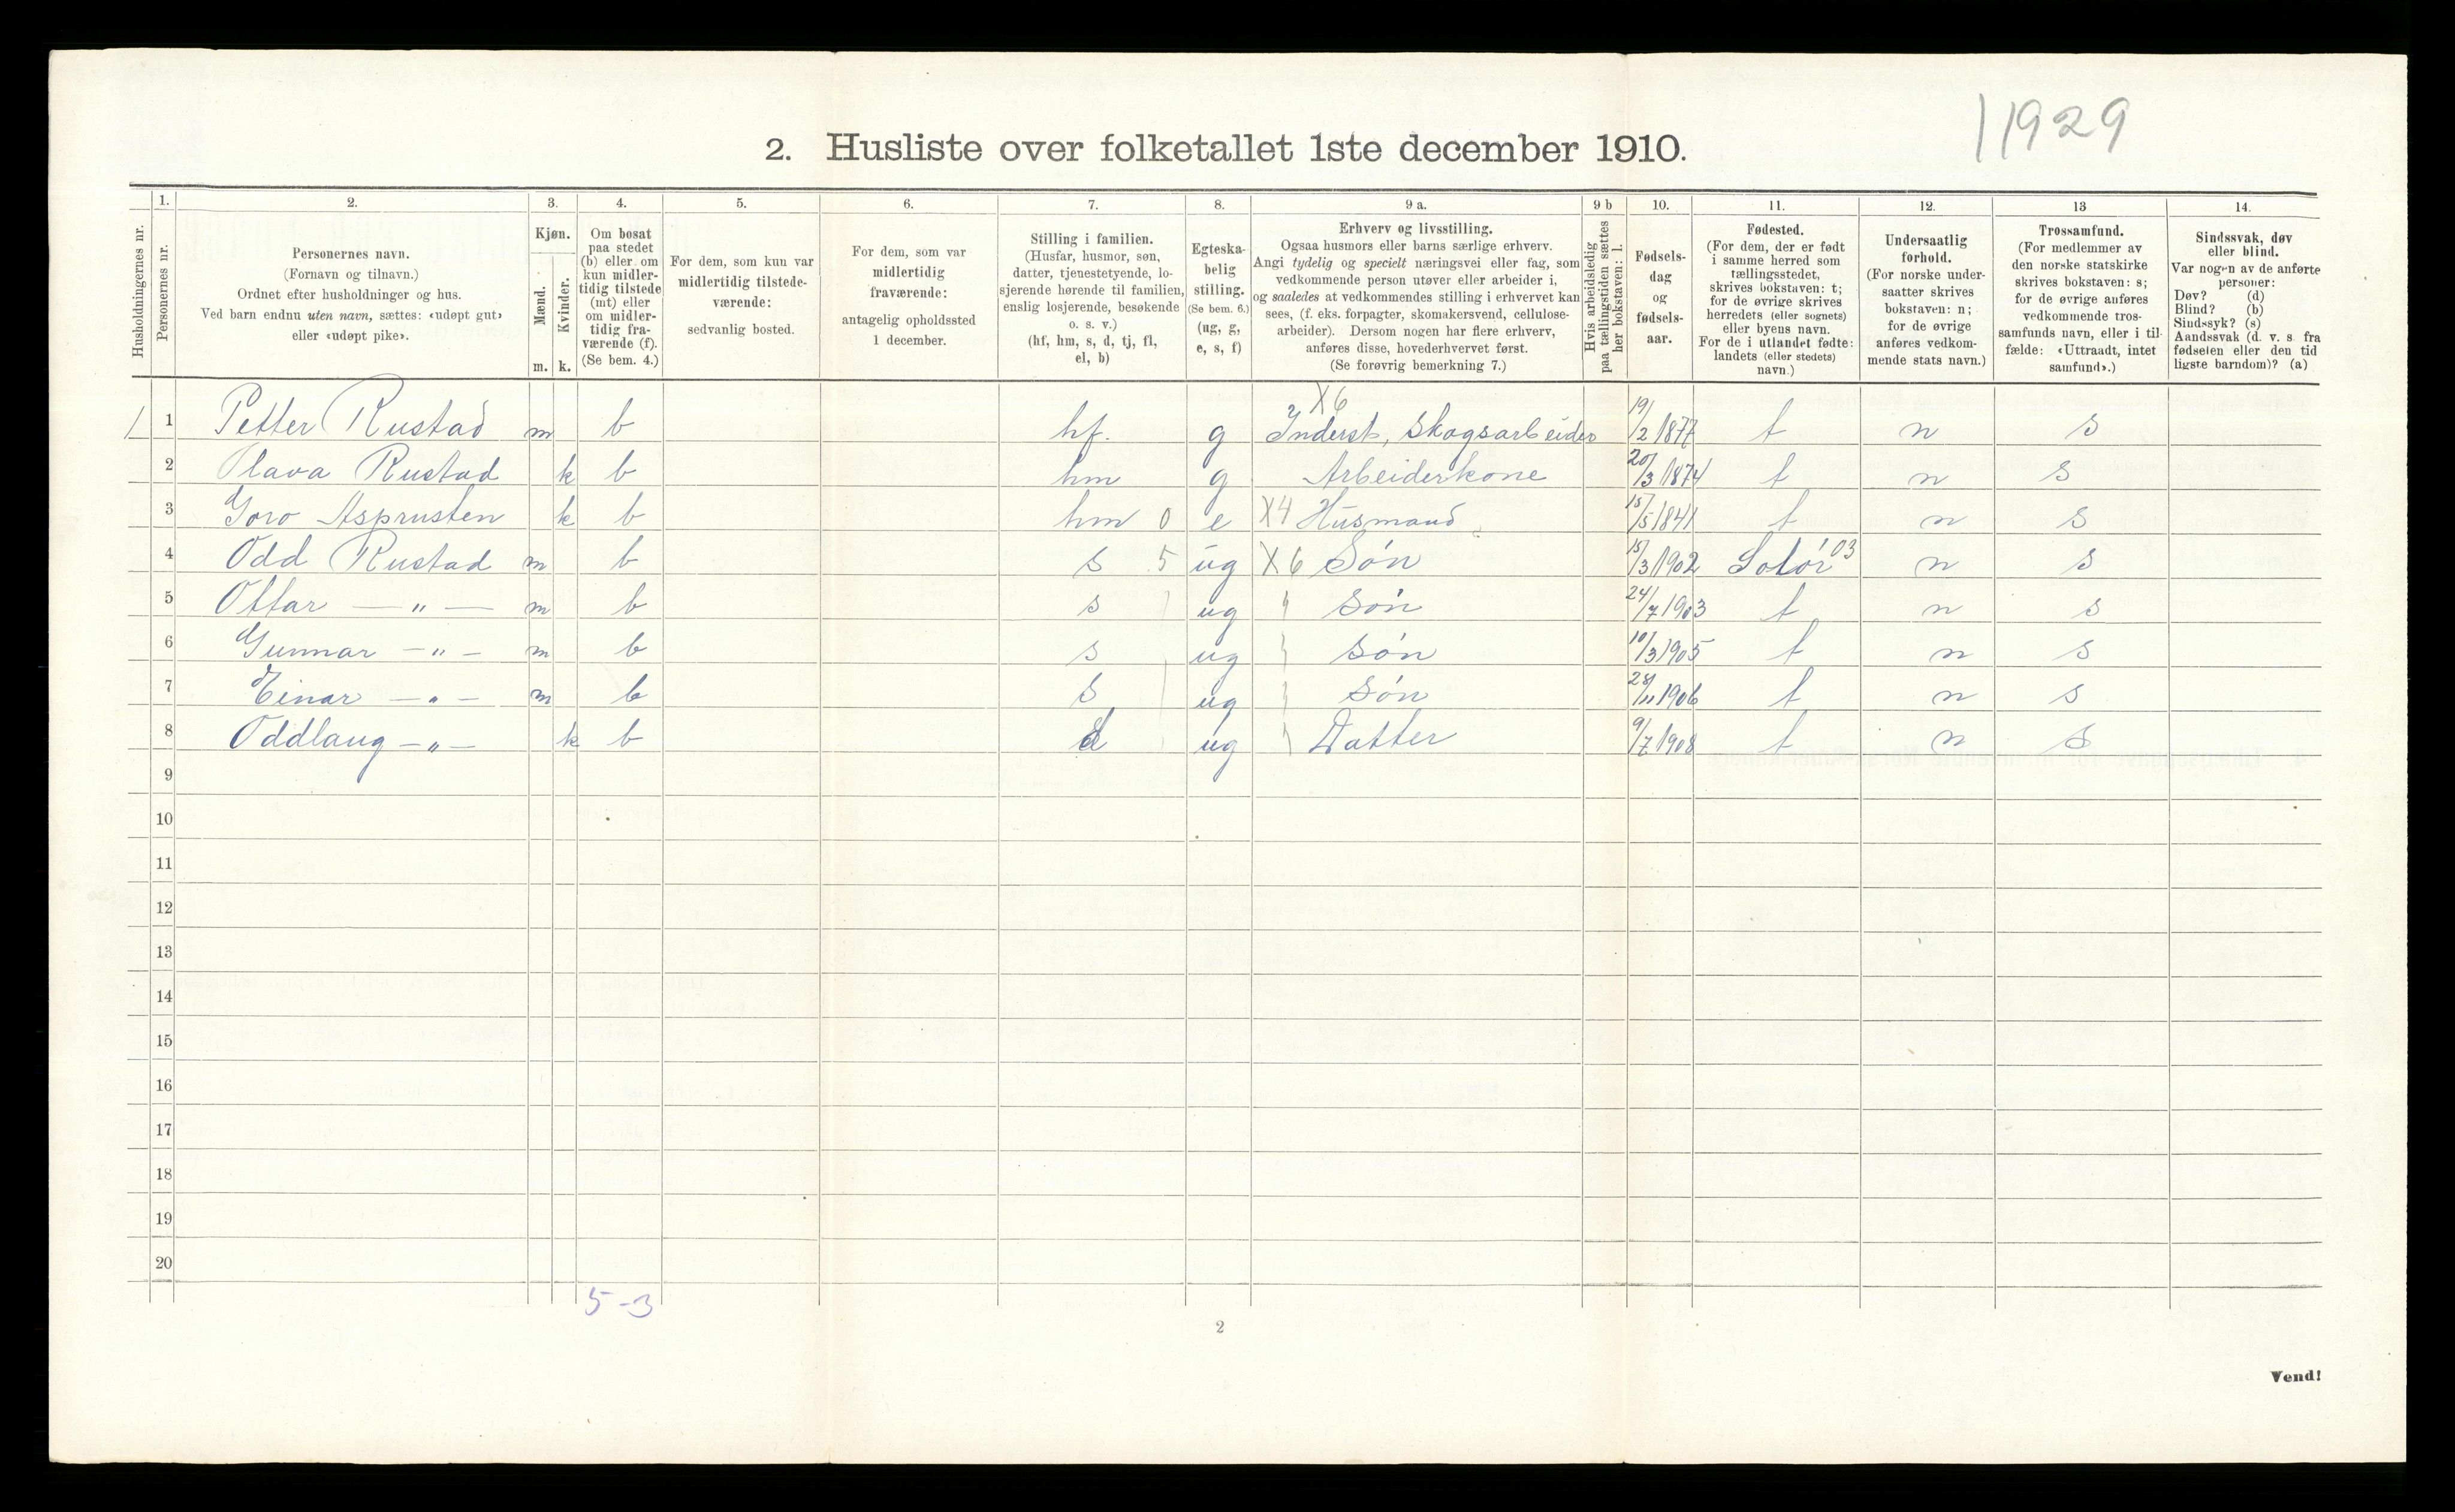 11929
2. Husliste over folketallet 1ste december 1910.
1. 2. 3. 4. 5. 6. 7. 8. 9 a. 9 b 10. 11. 12. 13 14.
Husholdningernes nr.
Personernes nr.
Personernes navn.
(Fornavn og tilnavn.)
Ordnet efter husholdninger og hus.
Ved barn endnu uten navn, sættes: «udøpt gut»
eller «udøpt pike».
Kjøn.
Mænd.
Kvinder.
m. k.
Om bosat
paa stedet
(b) eller om
kun midler-
tidig tilstede
(mt) eller
om midler-
tidig fra-
værende (f).
(Se bem. 4.)
For dem, som kun var
midlertidig tilstede-
værende:
sedvanlig bosted.
For dem, som var
midlertidig
fraværende:
antagelig opholdssted
1 december.
Stilling i familien.
(Husfar, husmor, søn,
datter, tjenestetyende, lo-
sjerende hørende til familien,
enslig losjerende, besøkende
o. s. v.)
(hf, hm, s, d, tj, fl,
el, b)
Egteska-
belig
stilling.
(Se bem. 6.)
(ug, g,
e, s, f)
Erhverv og livsstilling.
Ogsaa husmors eller barns særlige erhverv.
Angi tydelig og specielt næringsvei eller fag, som
vedkommende person utøver eller arbeider i,
og saaledes at vedkommendes stilling i erhvervet kan
sees, (f. eks. forpagter, skomakersvend, cellulose-
arbeider). Dersom nogen har flere erhverv,
anføres disse, hovederhvervet først.
(Se forøvrig bemerkning 7.)
Hvis arbeidsledig
paa tællingstiden sættes
her bokstaven: l.
Fødsels-
dag
og
fødsels-
aar.
Fødested.
(For dem, der er født
i samme herred som
tællingsstedet,
skrives bokstaven: t;
for de øvrige skrives
herredets (eller sognets)
eller byens navn.
For de i utlandet fødte:
landets (eller stedets)
navn.)
Undersaatlig
forhold.
(For norske under-
saatter skrives
bokstaven: n;
for de øvrige
anføres vedkom-
mende stats navn.)
Trossamfund.
(For medlemmer av
den norske statskirke
skrives bokstaven: s;
for de øvrige anføres
vedkommende tros-
samfunds navn, eller i til-
fælde: «Uttraadt, intet
samfund».)
Sindssvak, døv
eller blind.
Var nogen av de anførte
personer:
Døv? (d)
Blind? (b)
Sindssyk? (s)
Aandssvak (d. v. s. fra
fødselen eller den tid
ligste barndom)? (a)
X6
1 1 Petter Rustad m b hf. g Inderst, Skogsarbeider 19/2 1877 t n s
2 Olava Rustad k b hm g Arbeiderkone 20/3 1874 t n s
3 Goro Asprusten k b hm 0 e X4 Husmand 15/5 1841 t n s
4 Odd Rustad m b s 5 ug X6 Søn 15/3 1902 Solør 03 n s
5 Ottar — " — m b s ug Søn 24/7 1903 t n s
6 Gunnar — " — m b s ug Søn 10/3 1905 t n s
7 Einar — " — m b s ug Søn 28/11 1906 t n s
8 Oddlaug — " — k b d ug Datter 9/7 1908 t n s
9
10
11
12
13
14
15
16
17
18
19
20
5-3
2
Vend!